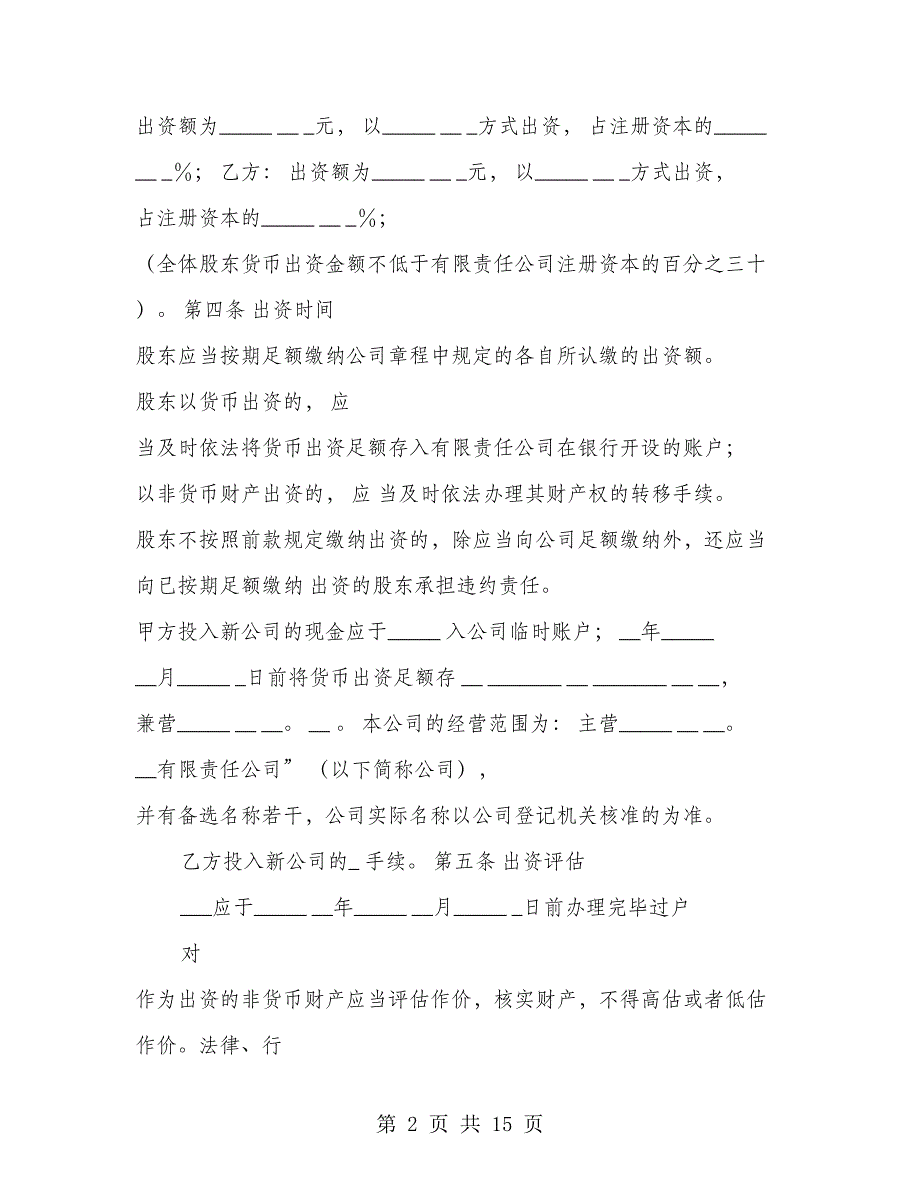 出资额为_____ __ _元， 以_____ __ _方式出资， 占注册资本的_____
__ _%； 乙方： 出资额为_____ __ _元， 以_____ __ _方式出资，
占注册资本的_____ __ _%；
（全体股东货币出资金额不低于有限责任公司注册资本的百分之三十
）。 第四条 出资时间
股东应当按期足额缴纳公司章程中规定的各自所认缴的出资额。
股东以货币出资的， 应
当及时依法将货币出资足额存入有限责任公司在银行开设的账户；
以非货币财产出资的， 应 当及时依法办理其财产权的转移手续。
股东不按照前款规定缴纳出资的，除应当向公司足额缴纳外，还应当
向已按期足额缴纳 出资的股东承担违约责任。
甲方投入新公司的现金应于_____ 入公司临时账户； __年_____
__月_____ _日前将货币出资足额存 __ _______ __ _______ __ __，
兼营_____ __ __。 __ 。 本公司的经营范围为： 主营_____ __ __。
__有限责任公司” （以下简称公司），
并有备选名称若干，公司实际名称以公司登记机关核准的为准。
乙方投入新公司的_ 手续。 第五条 出资评估
___应于_____ __年_____ __月_____ _日前办理完毕过户
对
作为出资的非货币财产应当评估作价，核实财产，不得高估或者低估
作价。法律、行
第 2 页 共 15 页